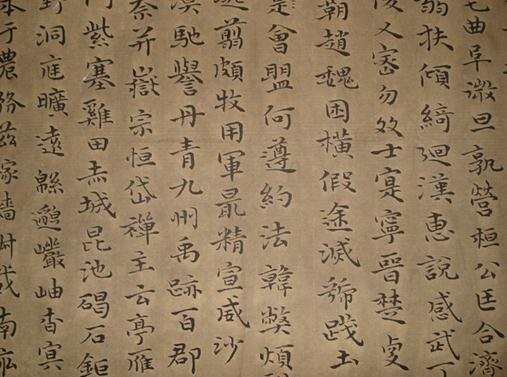 曲阜微旦孰營桓公匡合濟
弱扶傾綺迴漢惠說感武丁
乂密勿多士寔寧晉楚更
霸趙魏困橫假途滅虢踐土
會盟何遵約法韓弊煩
翦頗牧用軍最精宣威沙
漠馳譽丹青九州禹跡百郡
秦并嶽宗恒岱禪主云亭雁
門紫塞雞田赤城昆池碣石鉅
野洞庭曠遠緜邈巖岫杳冥
本於農務茲稼穡俶載南畝